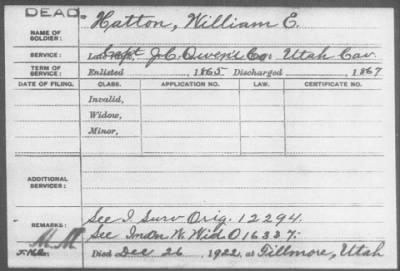 DEAD.
NAME OF SOLDIER: Hatton, William E.
SERVICE: Late Capt J.C. Owen's Co. Utah Cav.
TERM OF SERVICE: Enlisted , 1865 Discharged , 1867
DATE OF FILING. CLASS. APPLICATION NO. LAW. CERTIFICATE NO.
Invalid,
Widow,
Minor,
ADDITIONAL SERVICES:
REMARKS: See I Surv Orig. 12294.
See Indn W. Wid O 16337.
Died Dec 26, 1922, at Fillmore, Utah